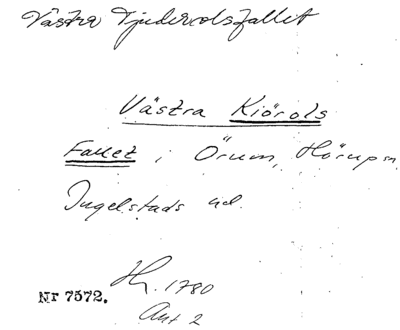 Västra Tjuderolsfallet
Västra Kiörols
Fallet i Örum, Hörups
Ingelstads hd.
H. 1780
Nr 7572.
Akt 2